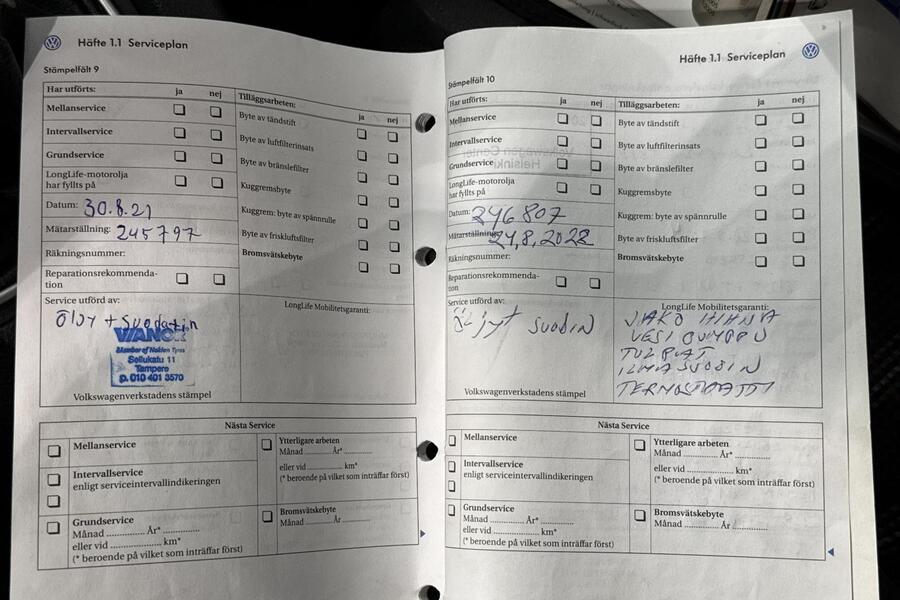 Häfte 1.1 Serviceplan
Stämpelfält 9
Har utförts: ja nej
Mellanservice
Intervallservice
Grundservice
LongLife-motorolja
har fyllts på
Datum: 30.8.21
Mätarställning: 245797
Räkningsnummer:
Reparationsrekommenda-
tion
Tilläggsarbeten: ja nej
Byte av tändstift
Byte av luftfilterinsats
Byte av bränslefilter
Kuggremsbyte
Kuggrem: byte av spännrulle
Byte av friskluftsfilter
Bromsvätskebyte
Service utförd av:
ÖljY + Suodatin
VIANOR
Member of Nokian Tyres
Sellukatu 11
Tampere
p. 010 401 3570
Volkswagenverkstadens stämpel
LongLife Mobilitetsgaranti:
Nästa Service
Mellanservice
Intervallservice
enligt serviceintervallindikeringen
Grundservice
Månad .............. År* ..............
eller vid .......................... km*
(* beroende på vilket som inträffar först)
Ytterligare arbeten
Månad ......... År* .............
eller vid ................ km*
(* beroende på vilket som inträffar först)
Bromsvätskebyte
Månad ......... År .............
Häfte 1.1 Serviceplan
Stämpelfält 10
Har utförts: ja nej
Mellanservice
Intervallservice
Grundservice
LongLife-motorolja
har fyllts på
Datum: 246807
Mätarställning: 24,8,2022
Räkningsnummer:
Reparationsrekommenda-
tion
Tilläggsarbeten: ja nej
Byte av tändstift
Byte av luftfilterinsats
Byte av bränslefilter
Kuggremsbyte
Kuggrem: byte av spännrulle
Byte av friskluftsfilter
Bromsvätskebyte
Service utförd av:
Öljyt SUODIN
Volkswagenverkstadens stämpel
LongLife Mobilitetsgaranti:
JAKO HIHNA
VESI PUMPPU
TULPAT
ILMASUODIN
TERMOSTAATTI
Nästa Service
Mellanservice
Intervallservice
enligt serviceintervallindikeringen
Grundservice
Månad .............. År* ..............
eller vid .......................... km*
(* beroende på vilket som inträffar först)
Ytterligare arbeten
Månad ......... År* .............
eller vid ................ km*
(* beroende på vilket som inträffar först)
Bromsvätskebyte
Månad ......... År .............